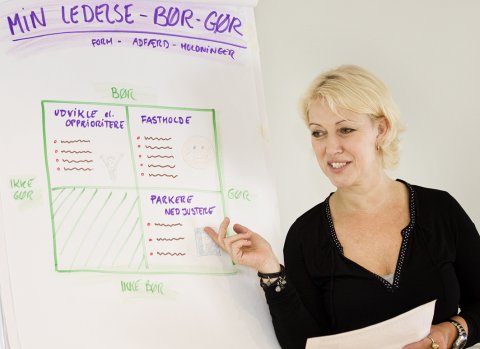 MIN LEDELSE - BØR - GØR
FORM - ADFÆRD - HOLDNINGER
BØR
UDVIKLE el. OPPRIORITERE
FASTHOLDE
IKKE GØR
GØR
PARKERE NEDJUSTERE
IKKE BØR